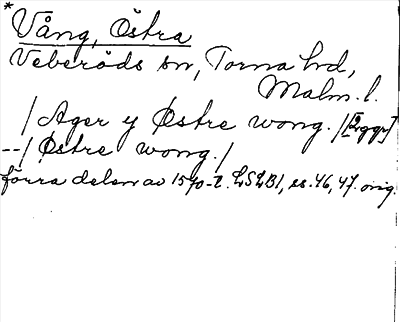 * Vång, Östra
Veberöds sn, Torna hd,
Malm. l.
/ Ager y Østre wong. / [2 ggr]
-- / Østre wong. /
förra delen av 1570-t. LSLB1, ss. 46, 47. orig.